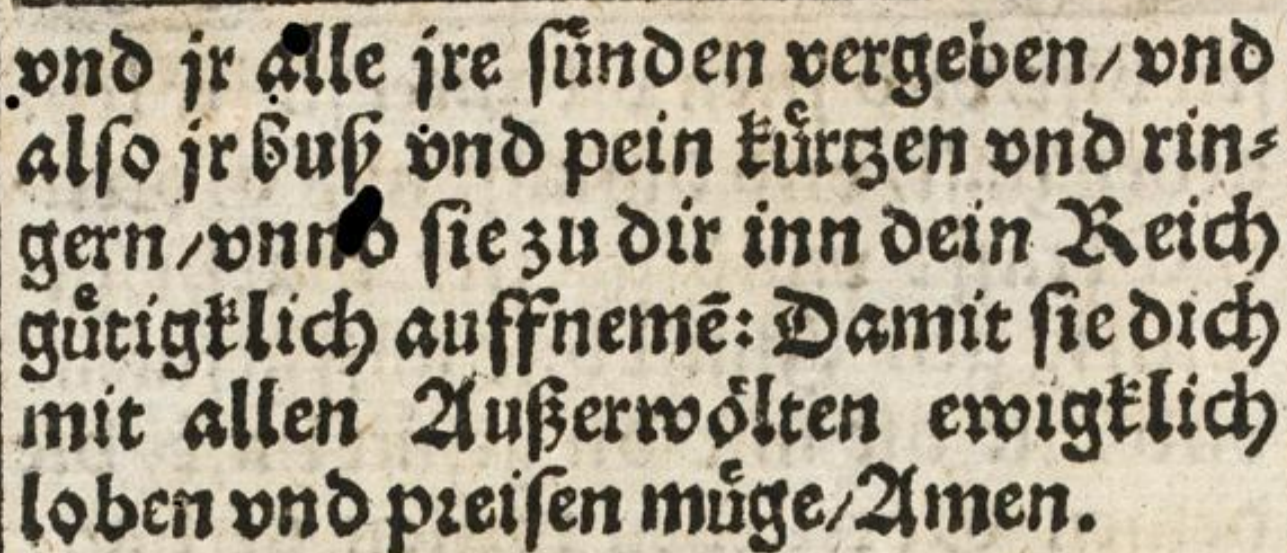 vnd jr alle jre ſünden vergeben / vnd
alſo jr buß vnd pein kuͤrtzen vnd rin⸗
gern / vnnd ſie zu dir inn dein Reich
guͤtigklich auffnemē: Damit ſie dich
mit allen Außerwoͤlten ewigklich
loben vnd preiſen muͤge / Amen.